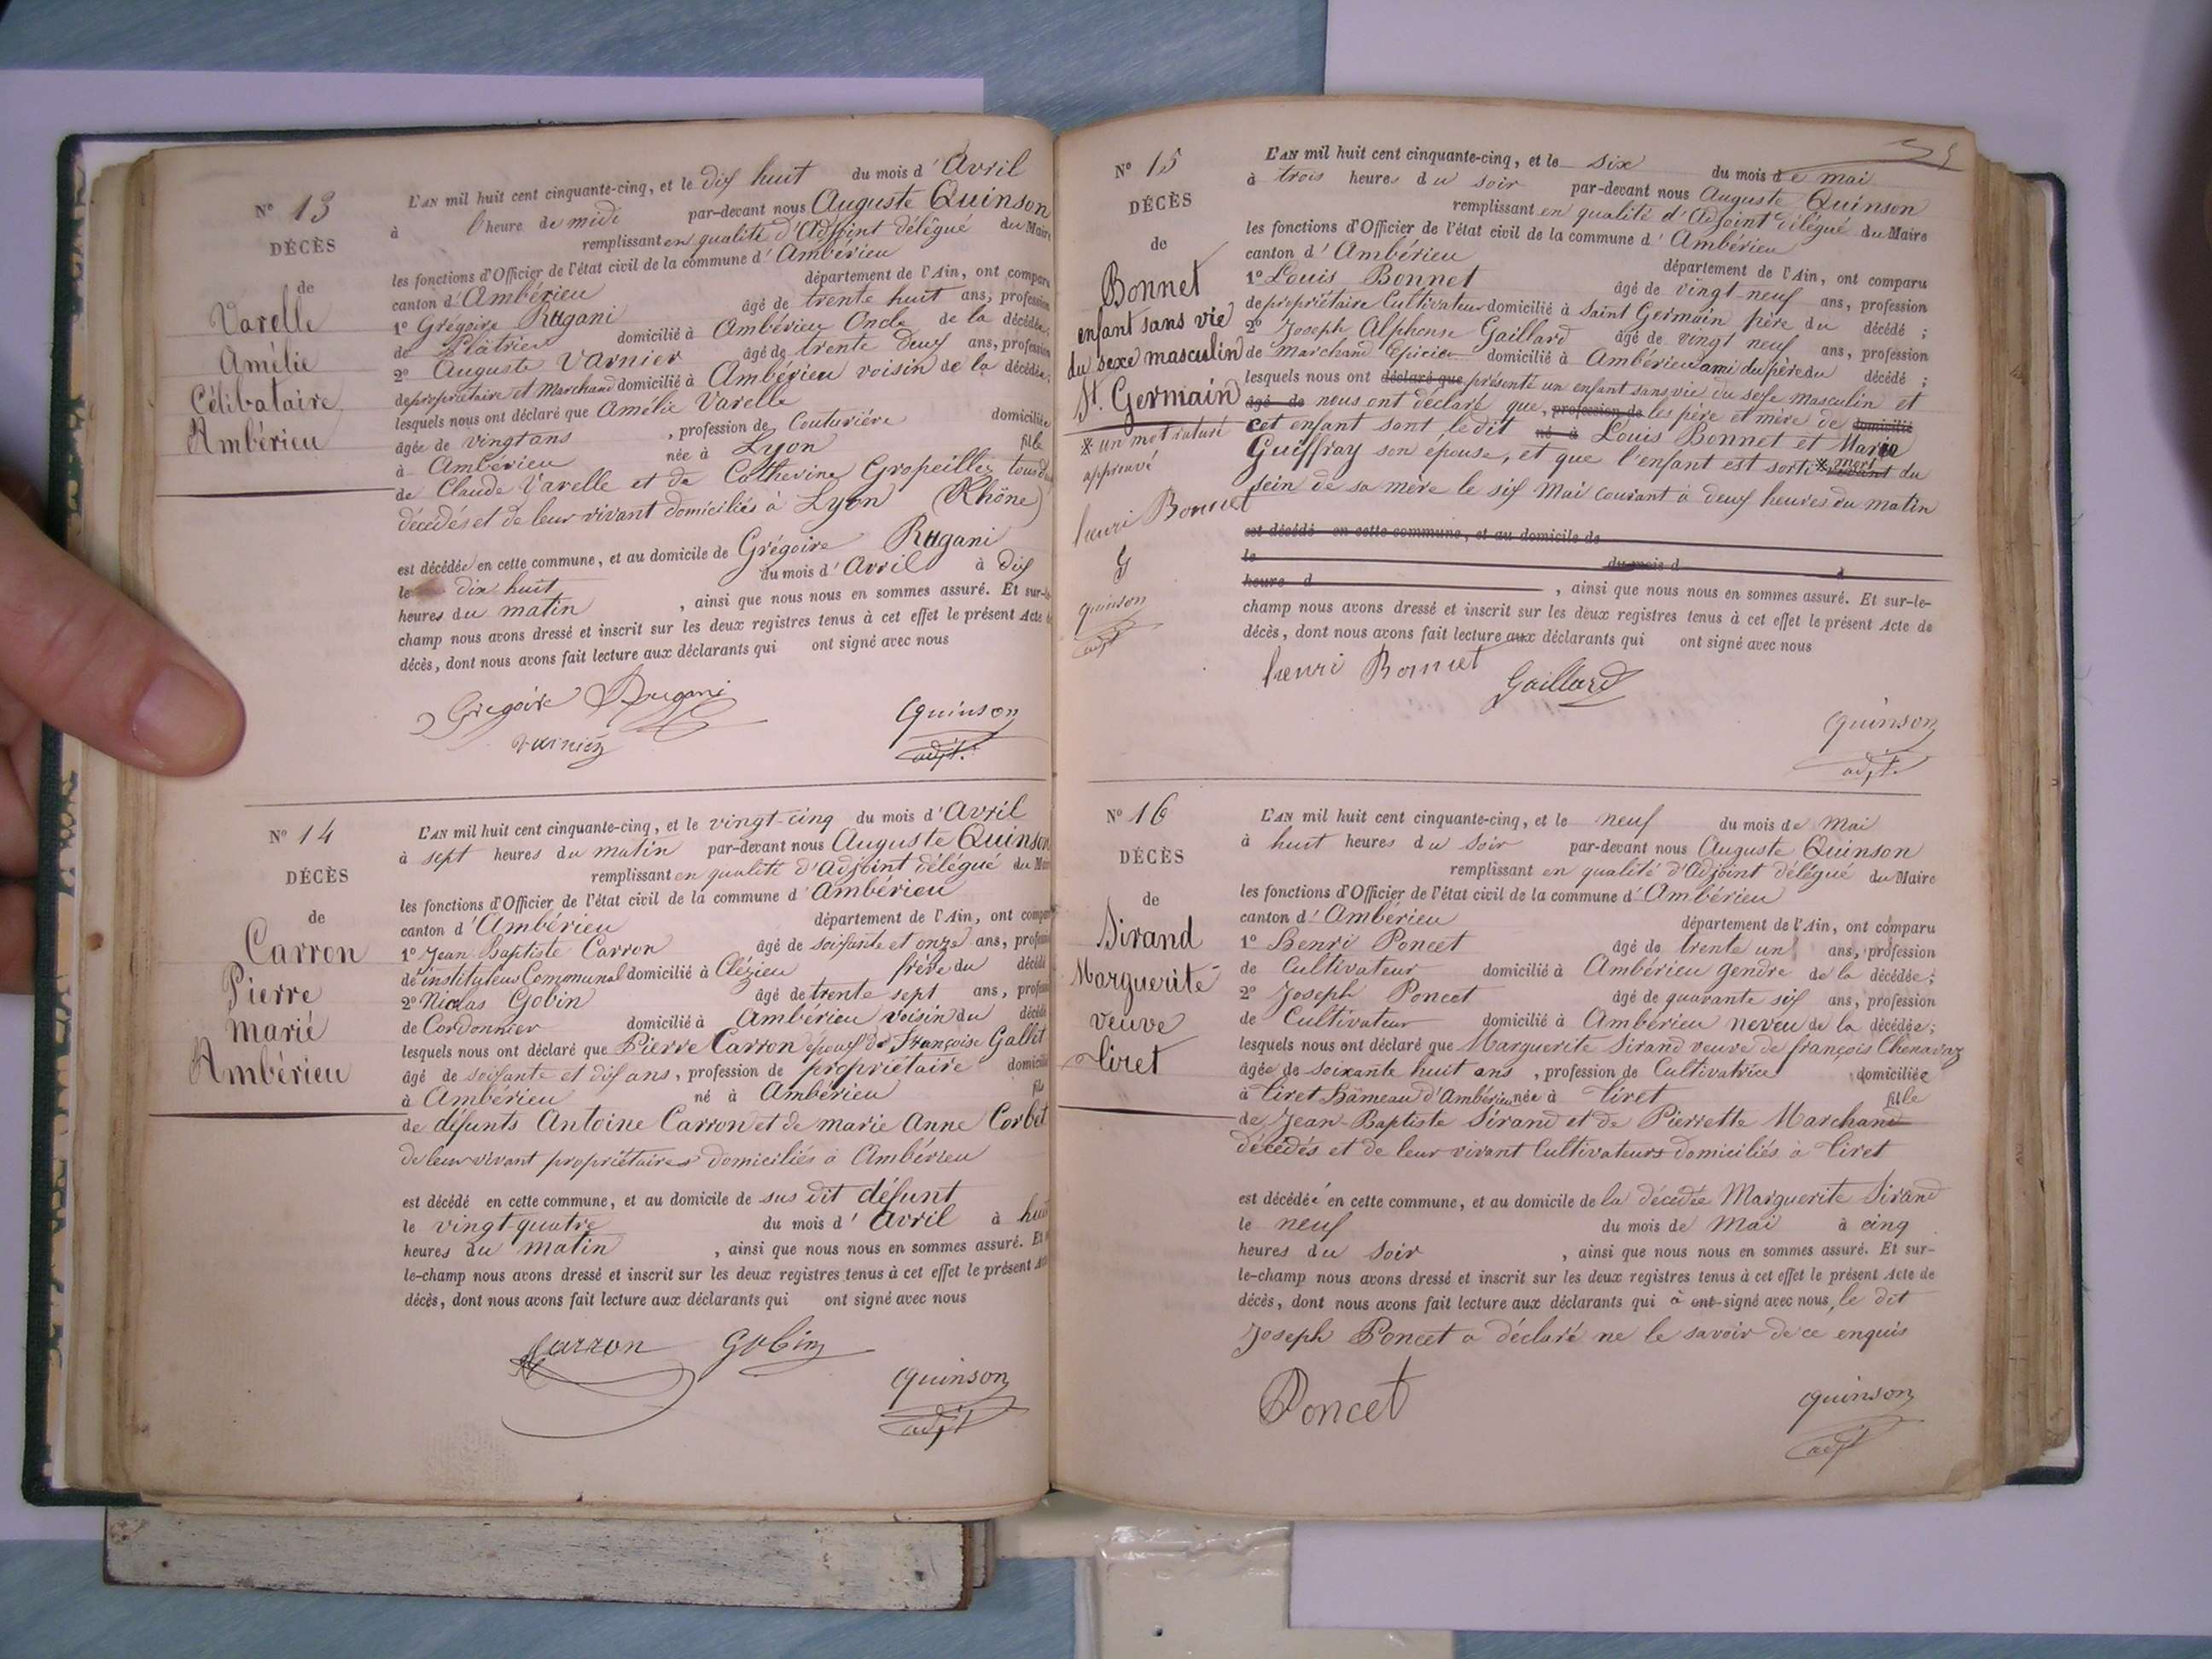 N° 13
DÉCÈS
de
Varelle
Amélie
Célibataire
Ambérieu
L'AN mil huit cent cinquante-cinq, et le dix huit du mois d'Avril
à l'heure de midi par-devant nous Auguste Quinson
remplissant en qualité d'Adjoint délégué du Maire
les fonctions d'Officier de l'état civil de la commune d'Ambérieu
canton d'Ambérieu département de l'Ain, ont comparu
1° Grégoire Rugani âgé de trente huit ans, profession
de Plâtrier domicilié à Ambérieu Oncle de la décédée;
2° Auguste Varnier âgé de trente deux ans, profession
de propriétaire et Marchand domicilié à Ambérieu voisin de la décédée;
lesquels nous ont déclaré que Amélie Varelle
âgée de vingt ans, profession de Couturière domiciliée
à Ambérieu née à Lyon fille
de Claude Varelle et de Catherine Gropeillez tous deux
décédés et de leur vivant domiciliés à Lyon (Rhône)
est décédée en cette commune, et au domicile de Grégoire Rugani
le dix huit du mois d'Avril à dix
heures du matin, ainsi que nous nous en sommes assuré. Et sur-le-
champ nous avons dressé et inscrit sur les deux registres tenus à cet effet le présent Acte de
décès, dont nous avons fait lecture aux déclarants qui ont signé avec nous
Grégoire Rugani
Varnier
Quinson
adjt.
N° 14
DÉCÈS
de
Carron
Pierre
marié
Ambérieu
L'AN mil huit cent cinquante-cinq, et le vingt-cinq du mois d'Avril
à sept heures du matin par-devant nous Auguste Quinson
remplissant en qualité d'Adjoint délégué du Maire
les fonctions d'Officier de l'état civil de la commune d'Ambérieu
canton d'Ambérieu département de l'Ain, ont comparu
1° Jean Baptiste Carron âgé de soixante et onze ans, profession
de instituteur Communal domicilié à Clézieu frère du décédé
2° Nicolas Gobin âgé de trente sept ans, profession
de Cordonnier domicilié à Ambérieu voisin du décédé
lesquels nous ont déclaré que Pierre Carron époux de Françoise Gallet
âgé de soixante et dix ans, profession de propriétaire domicilié
à Ambérieu né à Ambérieu fils
de défunts Antoine Carron et de marie Anne Corbet
de leur vivant propriétaires domiciliés à Ambérieu
est décédé en cette commune, et au domicile de sus dit défunt
le vingt-quatre du mois d'Avril à huit
heures du matin, ainsi que nous nous en sommes assuré. Et sur-
le-champ nous avons dressé et inscrit sur les deux registres tenus à cet effet le présent Acte
décès, dont nous avons fait lecture aux déclarants qui ont signé avec nous
Carron Gobin
Quinson
adjt
N° 15
DÉCÈS
de
Bonnet
enfant sans vie
du sexe masculin
St. Germain
* un mot raturé
approuvé
henri Bonnet
G
Quinson
adjt
L'AN mil huit cent cinquante-cinq, et le six du mois de mai
à trois heures du soir par-devant nous Auguste Quinson
remplissant en qualité d'Adjoint délégué du Maire
les fonctions d'Officier de l'état civil de la commune d'Ambérieu
canton d'Ambérieu département de l'Ain, ont comparu
1° Louis Bonnet âgé de vingt-neuf ans, profession
de propriétaire Cultivateur domicilié à Saint Germain père du décédé;
2° Joseph Alphonse Gaillard âgé de vingt neuf ans, profession
de marchand Epicier domicilié à Ambérieu ami du père du décédé;
lesquels nous ont déclaré que présenté un enfant sans vie du sexe masculin et
âgé de nous ont déclaré que, profession de les père et mère de domicilié
cet enfant sont ledit né à Louis Bonnet et Marie
Guiffray son épouse, et que l'enfant est sorti * mort du
sein de sa mère le six Mai courant à deux heures du matin
est décédé en cette commune, et au domicile de
le du mois d à
heure d, ainsi que nous nous en sommes assuré. Et sur-le-
champ nous avons dressé et inscrit sur les deux registres tenus à cet effet le présent Acte de
décès, dont nous avons fait lecture aux déclarants qui ont signé avec nous
henri Bonnet Gaillard
Quinson
adjt.
N° 16
DÉCÈS
de
Sirand
Marguerite
veuve
Tiret
L'AN mil huit cent cinquante-cinq, et le neuf du mois de Mai
à huit heures du soir par-devant nous Auguste Quinson
remplissant en qualité d'Adjoint délégué du Maire
les fonctions d'Officier de l'état civil de la commune d'Ambérieu
canton d'Ambérieu département de l'Ain, ont comparu
1° Henri Poncet âgé de trente un ans, profession
de Cultivateur domicilié à Ambérieu gendre de la décédée;
2° Joseph Poncet âgé de quarante six ans, profession
de Cultivateur domicilié à Ambérieu neveu de la décédée;
lesquels nous ont déclaré que Marguerite Sirand veuve de françois Chenavaz
âgée de soixante huit ans, profession de Cultivatrice domiciliée
à Tiret hameau d'Ambérieu née à Tiret fille
de Jean-Baptiste Sirand et de Pierrette Marchand
décédés et de leur vivant Cultivateurs domiciliés à Tiret
est décédée en cette commune, et au domicile de la décédée Marguerite Sirand
le neuf du mois de Mai à cinq
heures du soir, ainsi que nous nous en sommes assuré. Et sur-
le-champ nous avons dressé et inscrit sur les deux registres tenus à cet effet le présent Acte de
décès, dont nous avons fait lecture aux déclarants qui à ont signé avec nous, le dit
Joseph Poncet a déclaré ne le savoir de ce enquis
Poncet
Quinson
adjt